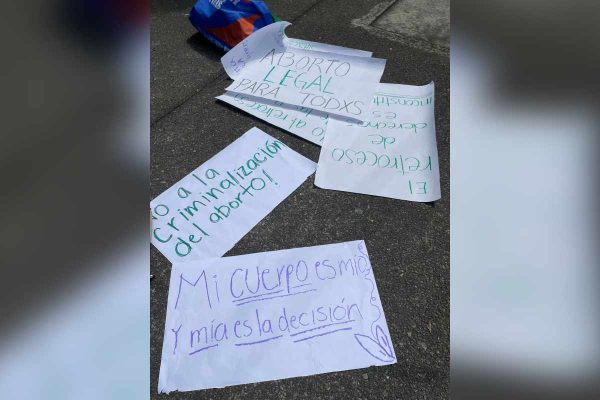 ABORTO
LEGAL
PARA TODXS
El
retroceso
de
derechos
es
inconstit
No a la
Criminalización
del aborto!
Mi CUERPO es mío
Y mía es la decisión